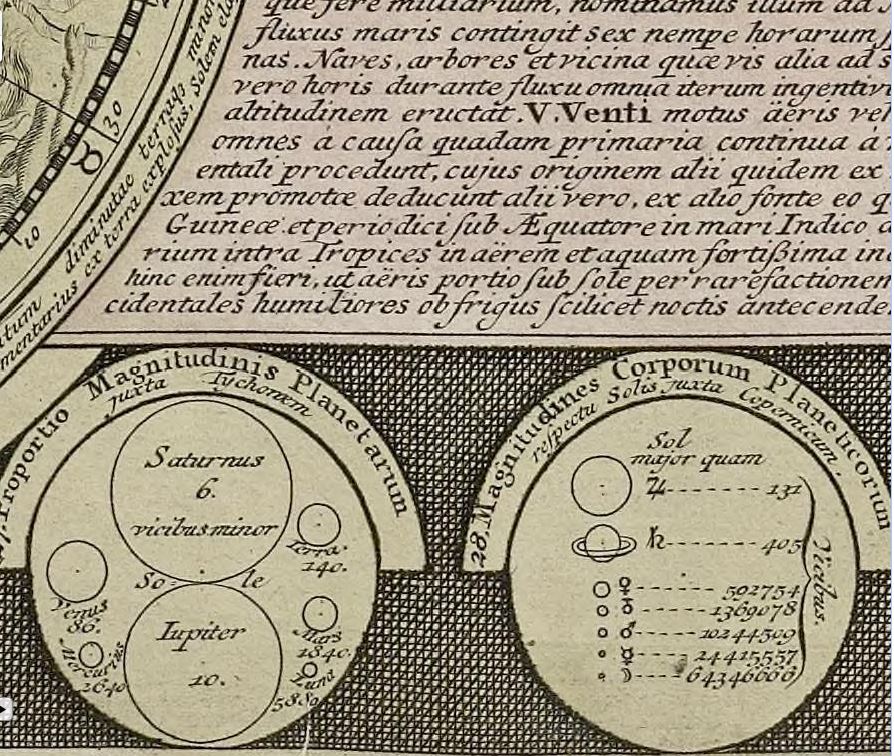 que fere milliarium, nominamus illum ad
fluxus maris contingit sex nempe horarum
nas. Naves, arbores et vicina quævis alia ad s
vero horis durante fluxu omnia iterum ingenti
altitudinem eructat. V. Venti motus äeris ve
omnes à cauſa quadam primaria continua à
entali procedunt, cujus originem alii quidem ex
xem promotæ deducunt alii vero, ex alio fonte eo q
Guineæ et periodici ſub Æquatore in mari Indico
rium intra Tropices in aërem et aquam fortißima in
hinc enim fieri, ut aëris portio ſub ſole per rarefactionem
cidentales humiliores ob frigus ſcilicet noctis antecende
30
♉
10
diminutæ terraqꝫ minor
mentarius ex terra exploſus, Solem
27. Proportio Magnitudinis Planetarum
juxta Tychonem
Saturnus
6.
vicibus minor
Terra
140.
So = le
Venus
86.
Iupiter
10.
Mars
1840.
Mercurius
2640
Luna
5880
28. Magnitudines Corporum Planeticorum
respectu Solis juxta Copernicum.
Sol
major quam
♃ - - - - - - - - 131
♄ - - - - - - - - 405
♀ - - - - - - 502754
♁ - - - - - 1369078
♂ - - - - - 10244509
☿ - - - - - 24415557
☽ - - - - - 64346666
Vicibus.